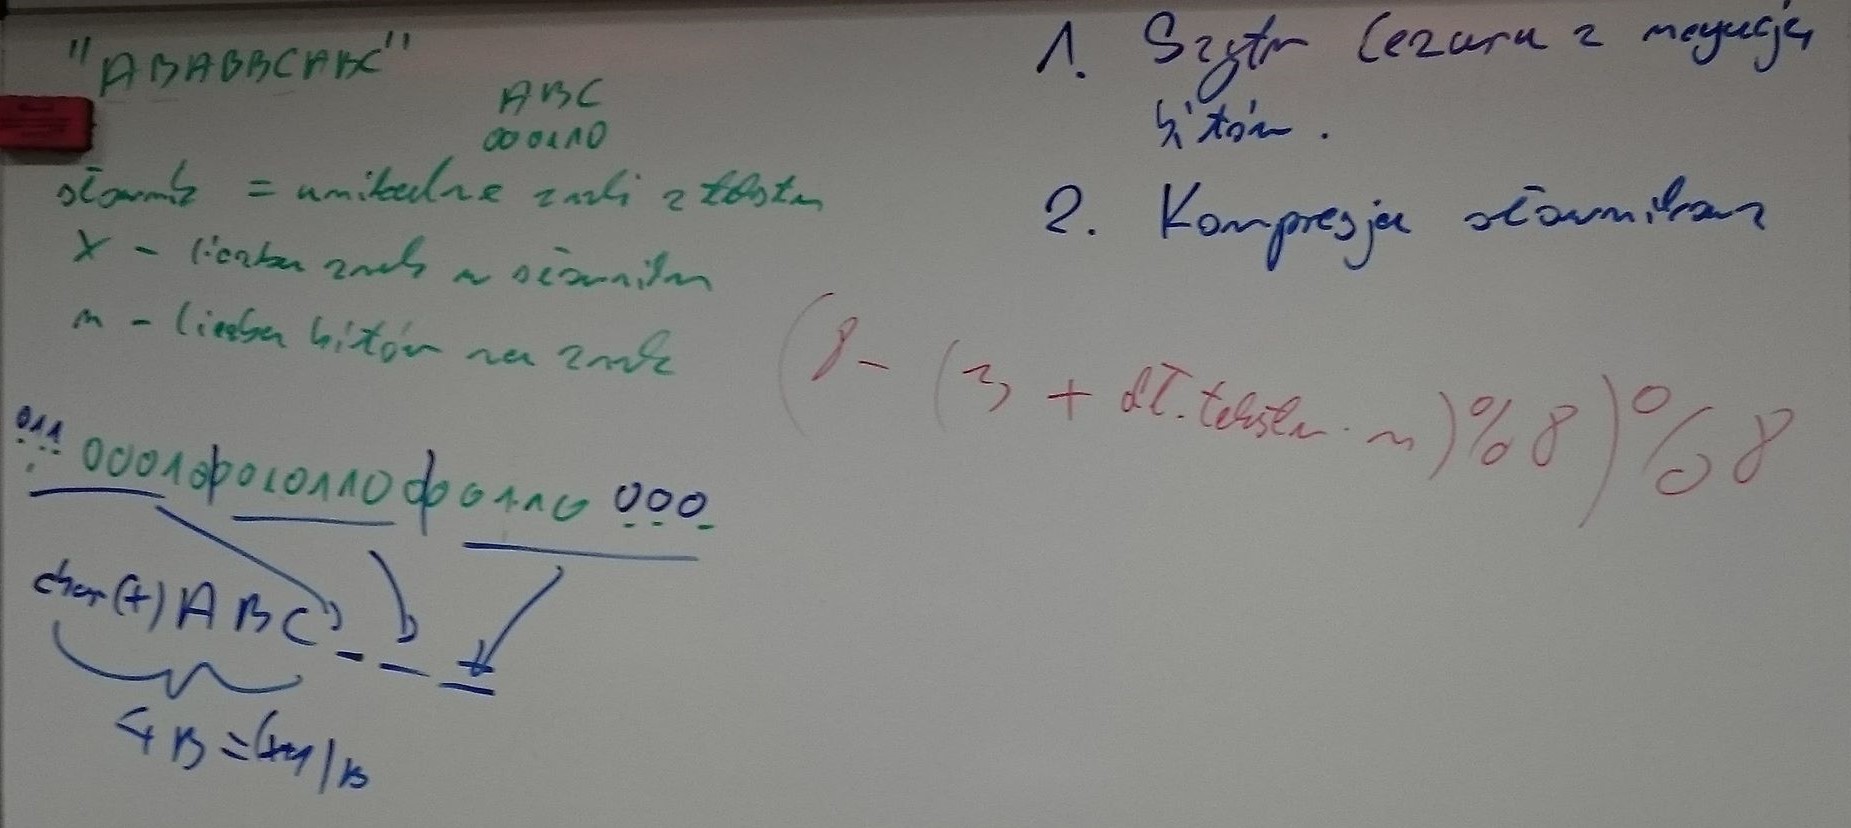 "ABABBCABC"
ABC
000110
słownik = unikalne znaki z tekstu
X - liczba znak w słowniku
n - liczba bitów na znak
011 000100010110 000110 000
char(+) ABC
4B = (x+1)B
1. Szyfr Cezara z negacją
bitów.
2. Kompresja słownikowa
(8 - (3 + dł. tekstu · n) % 8) % 8